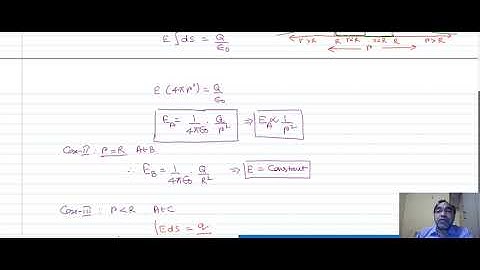 E∫ds = Q/ε₀
r>R R r<R r<R R r>R
r
E (4πr²) = Q/ε₀
E_A = 1/4πε₀ · Q/r² ⇒ E_A ∝ 1/r²
Case-II : r=R At B
∴ E_B = 1/4πε₀ · Q/R² ⇒ E = Constant
Case-III : r<R At C
∫Eds = q